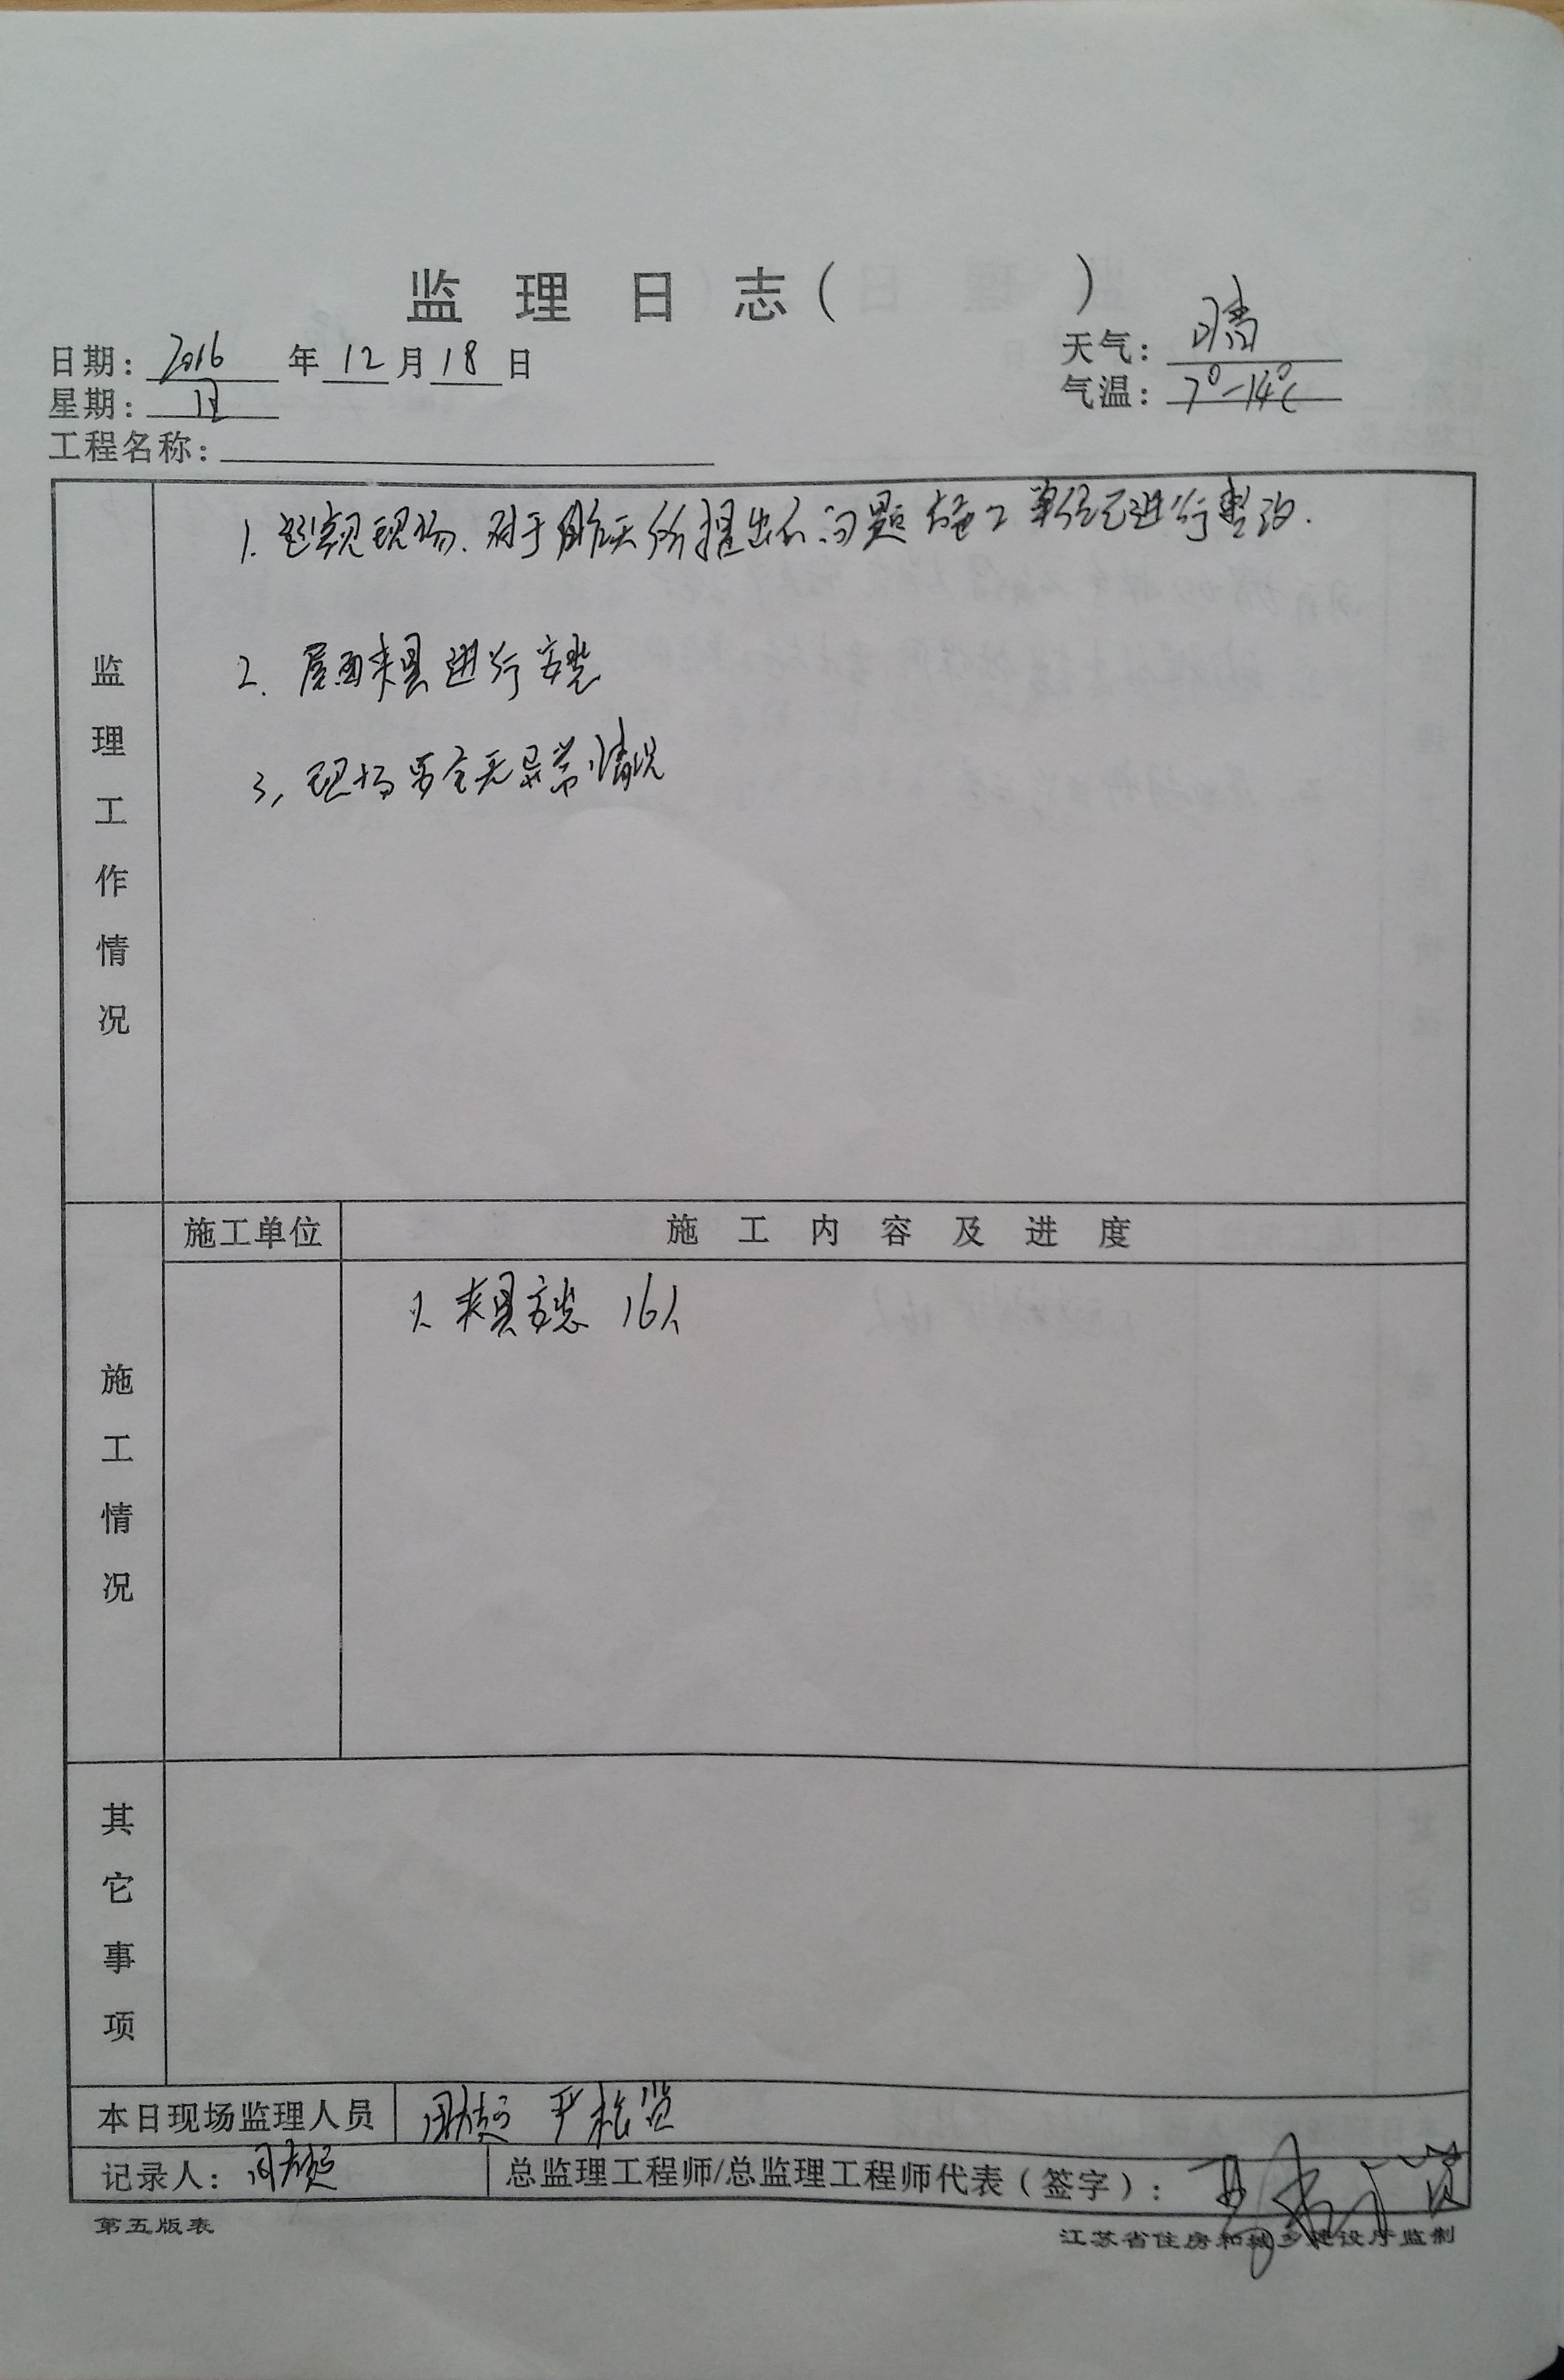 监理日志（ ）
日期：2016年12月18日
天气：晴
星期：日
气温：7°-14℃
工程名称：
监理工作情况
1. 巡视现场.对于昨天所提出的问题施工单位已进行整改.
2. 屋面夹具进行安装
3. 现场安全无异常情况
施工单位
施工内容及进度
施工情况
1. 夹具安装 16人
其它事项
本日现场监理人员 严松
记录人：
总监理工程师/总监理工程师代表（签字）：
第五版表
江苏省住房和城乡建设厅监制